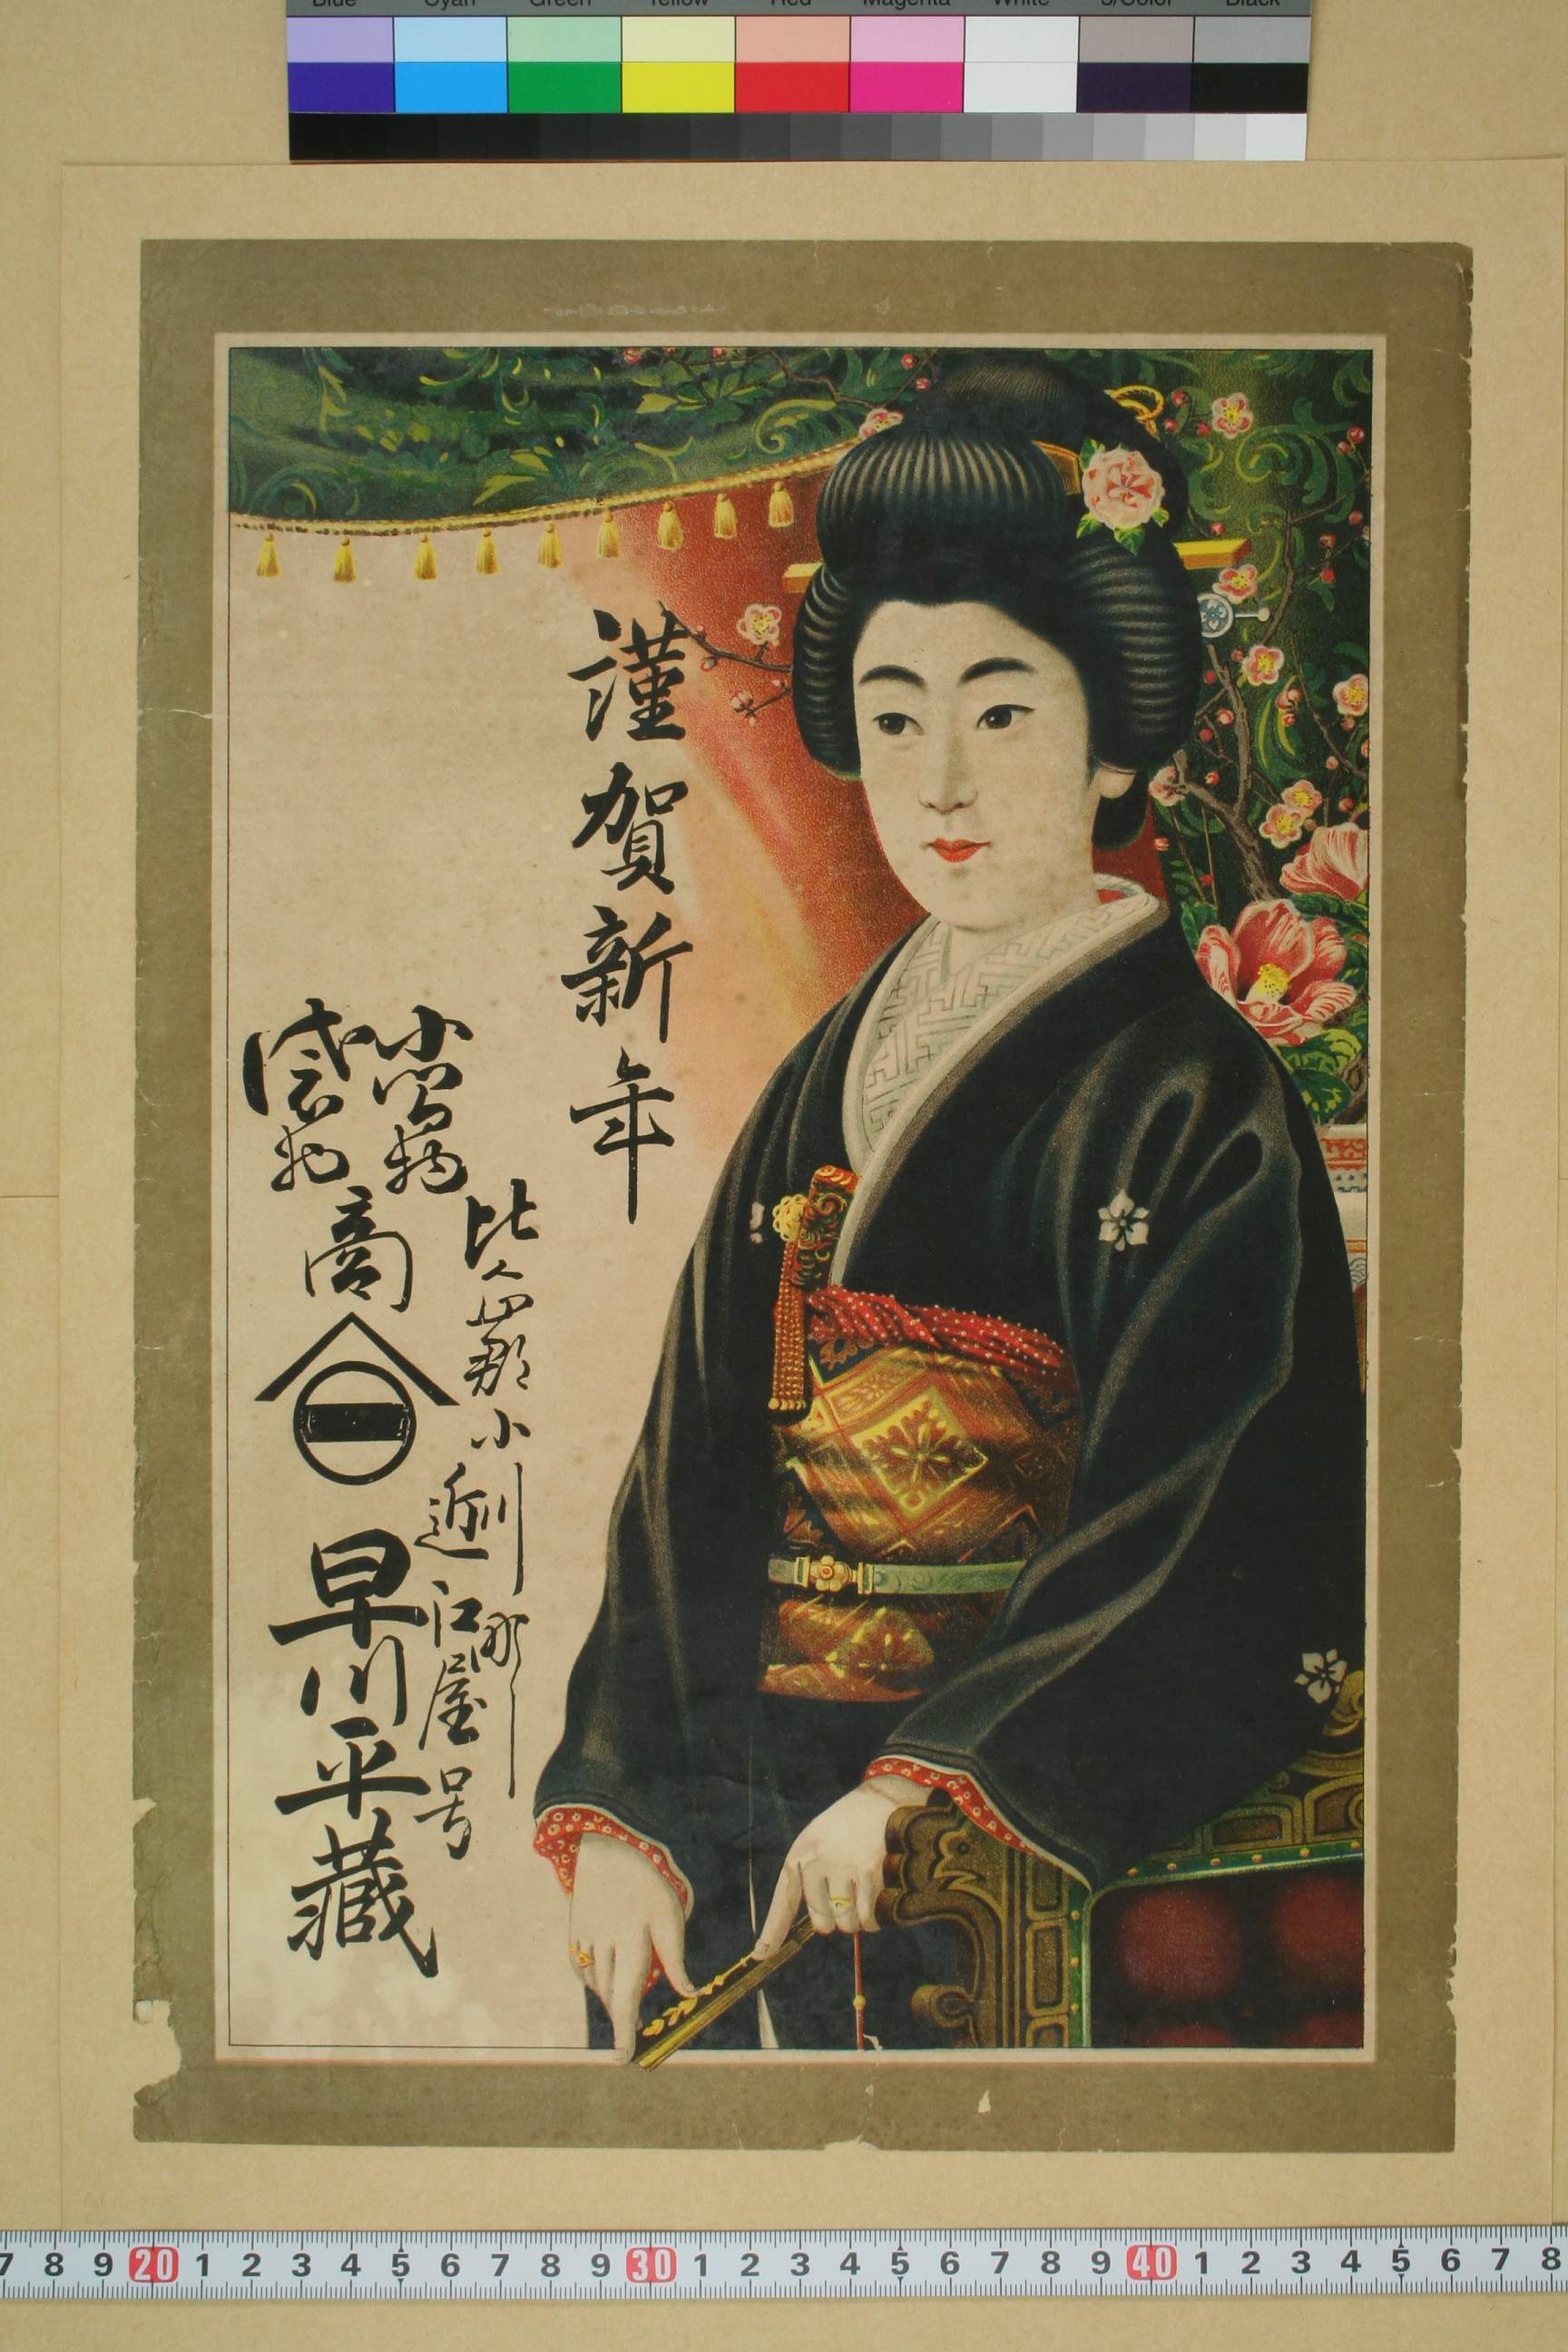 Blue Cyan Green Yellow Red Magenta White 3/Color Black
謹賀新年
比企郡小川町
近江屋号
小間物
袋物
商
早川平藏
7 8 9 20 1 2 3 4 5 6 7 8 9 30 1 2 3 4 5 6 7 8 9 40 1 2 3 4 5 6 7 8